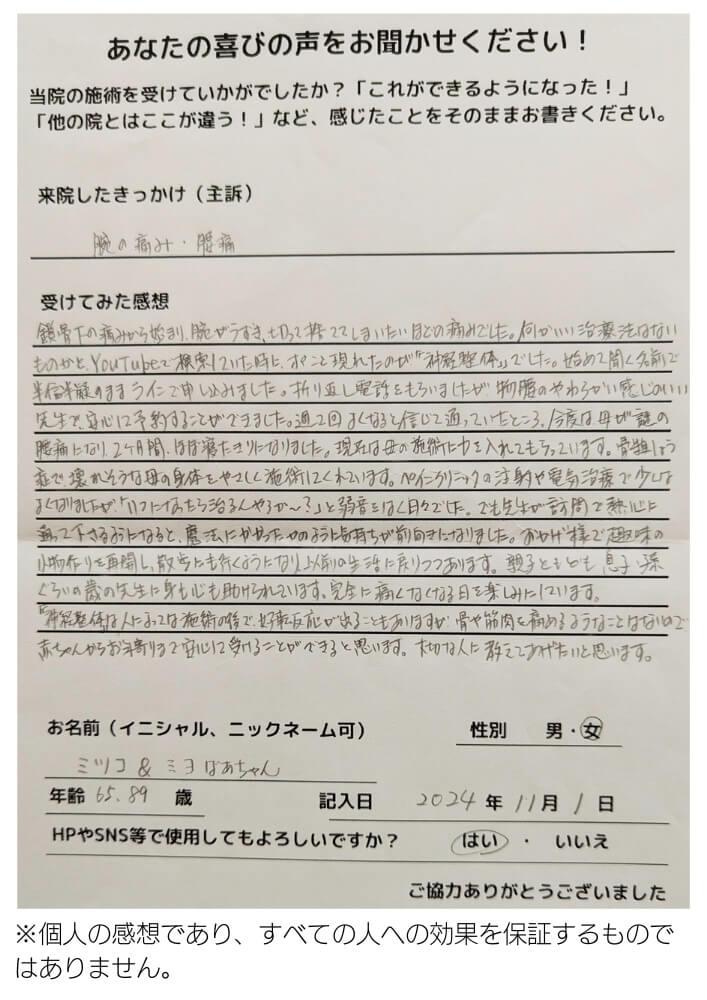 あなたの喜びの声をお聞かせください！
当院の施術を受けていかがでしたか？「これができるようになった！」
「他の院とはここが違う！」など、感じたことをそのままお書きください。
来院したきっかけ（主訴）
腕の痛み・腰痛
受けてみた感想
鎖骨下の痛みから始まり、腕がうずき、切って捨ててしまいたいほどの痛みでした。何かいい治療法はない
ものかと、YouTubeで検索していた時に、ポンと現れたのが「神経整体」でした。始めて聞く名前で
半信半疑のままラインで申し込みました。折り返し電話をもらいましたが、物腰のやわらかい感じのいい
先生で、安心して予約することができました。週2回よくなると信じて通っていたところ、今度は母が謎の
腰痛になり、2ヶ月間、ほぼ寝たきりになりました。現在は母の施術に力を入れてもらっています。骨粗しょう
症で、壊れそうな母の身体をやさしく施術してくれています。ペインクリニックの注射や電気治療で少しは
よくなりましたが、「いつになったら治るんやろか〜？」と弱音をはく日々でした。でも先生が訪問で熱心に
通って下さるようになると、魔法にかかったかのように気持ちが前向きになりました。おかげ様で趣味の
小物作りを再開し、散歩にも行くようになり以前の生活に戻りつつあります。親子ともども息子、孫
ぐらいの歳の先生に身も心も助けられています。完全に痛くなくなる日を楽しみにしています。
「神経整体」は人によっては施術の後で、好転反応が出ることもありますが、骨や筋肉を痛めるようなことはないので
赤ちゃんからお年寄りまで安心して受けることができると思います。大切な人に教えてあげたいと思います。
お名前（イニシャル、ニックネーム可）
性別 男・女
ミツコ & ミヨばあちゃん
年齢 65.89 歳 記入日 2024 年 11 月 1 日
HPやSNS等で使用してもよろしいですか？ はい ・ いいえ
ご協力ありがとうございました
※個人の感想であり、すべての人への効果を保証するもので
はありません。